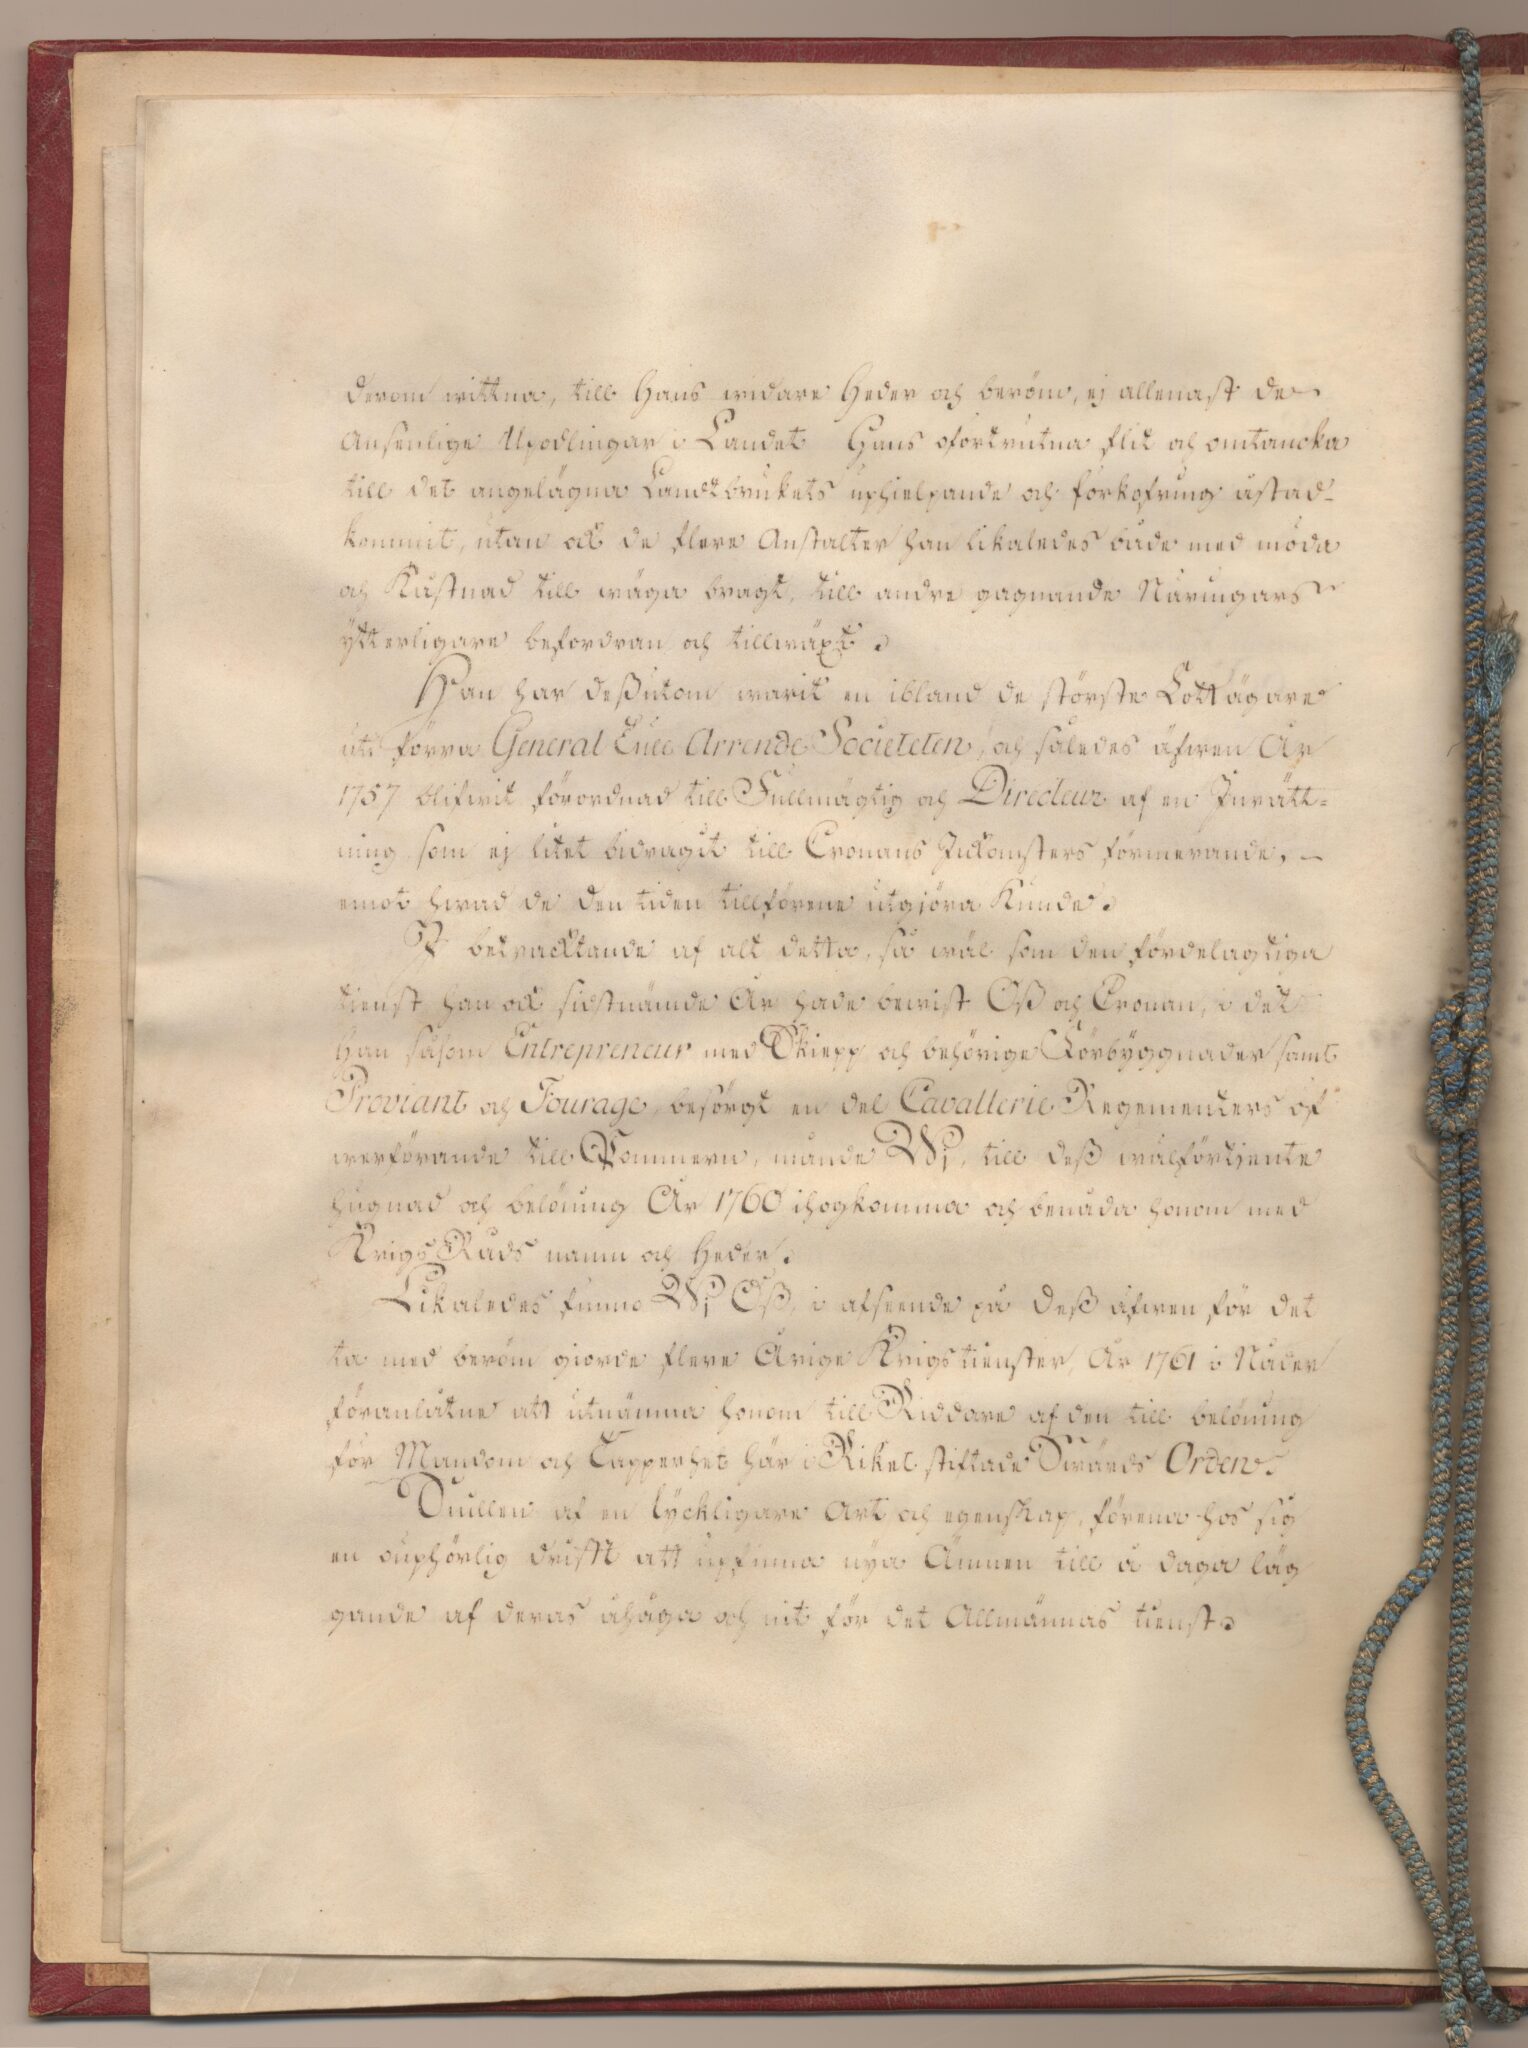 derom wittna, till Hans widare Heder och beröm, ej allenast de
Ansenlige Upodlingar i Landet Hans oförtrutna flit och omtancka
till det angelägna Landtbrukets uphielpande och förkofring åstad-
kommit, utan ock de flere Anstalter han likaledes både med möda
och Kåstnad till wäga bragt, till andre gagnande Näringars
ytterligare befordran och tillwäxt.
Han har dessutom warit en ibland de störste Lottägare
uti förra General Tull Arrende Societeten, och således äfwen År
1757 blifwit förordnad till Fullmägtig och Directeur af en Inrätt-
ning som ej litet bidragit till Cronans Inkomsters förmerande,
emot hwad de den tiden tillförene utgjöra Kunde.
I betracktande af alt detta, så wäl som den fördelagtiga
tienst han ock sidstnämde År hade bewist Oss och Cronan, i det
han såsom Entrepreneur med Skiepp och behörige Förbyggnader samt
Proviant och Fourage, besörgt en del Cavallerie Regementers öf
werförande till Pommern, månde Wi, till dess wälförtjente
hugnad och belöning År 1760 ihogkomma och benåda honom med
Krigs Råds namn och Heder.
Likaledes funno Wi Oss, i afseende på dess äfwen för det
ta med beröm giorde flere Årige Krigstienster, År 1761 i Nåder
föranlåtne att utnämna honom till Riddare af den till belöning
för Mandom och Tapperhet här i Riket stiftade Swärds Orden.
Snillen af en lyckligare Art och egenskap, förena hos sig
en ouphörlig drift att upfinna nya Ämnen till å daga läg
gande af deras åhåga och nit för det Allmännas tienst.